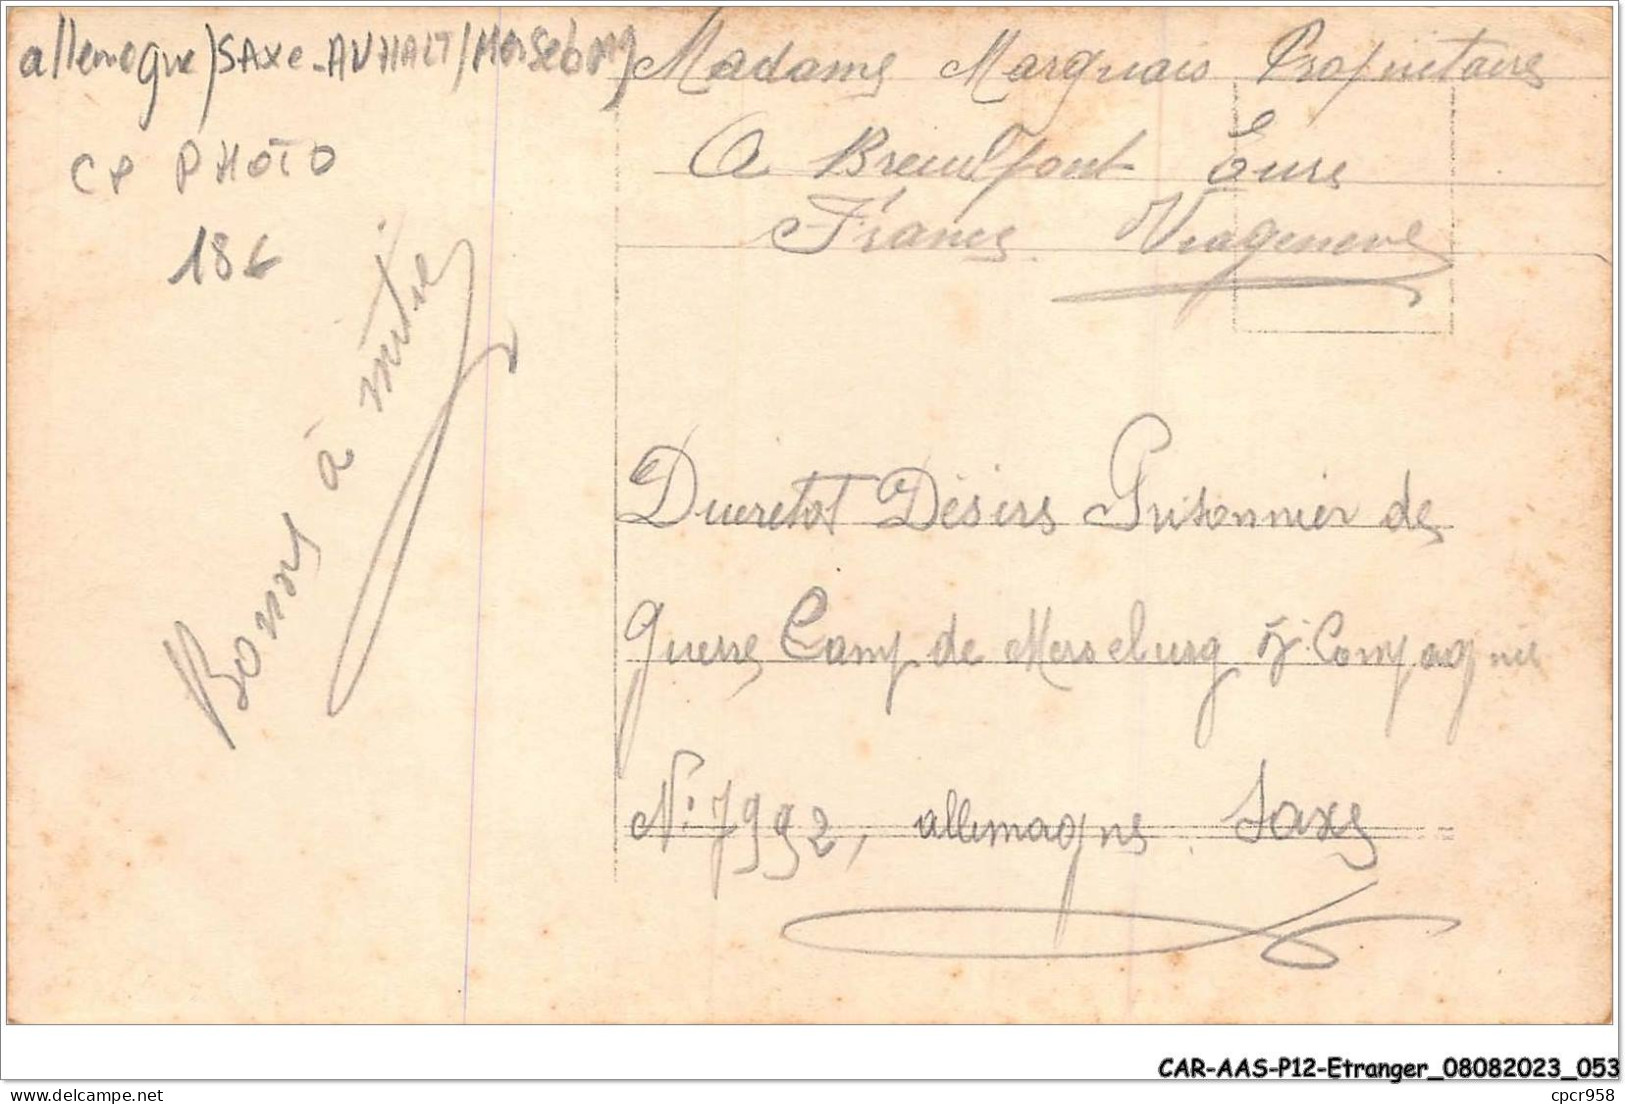 allemagne / SAXE-ANHALT / Merseburg
CP PHOTO
18€
Bonne à mitié
Madame Marquais Propriétaire
A Breuilpont Eure
France Via geneve
Ducretot Désiré Prisonnier de
guerre Camp de Merseburg 5e Compagnie
N: 7992, allemagne Saxe
CAR-AAS-P12-Etranger_08082023_053
cpcr958